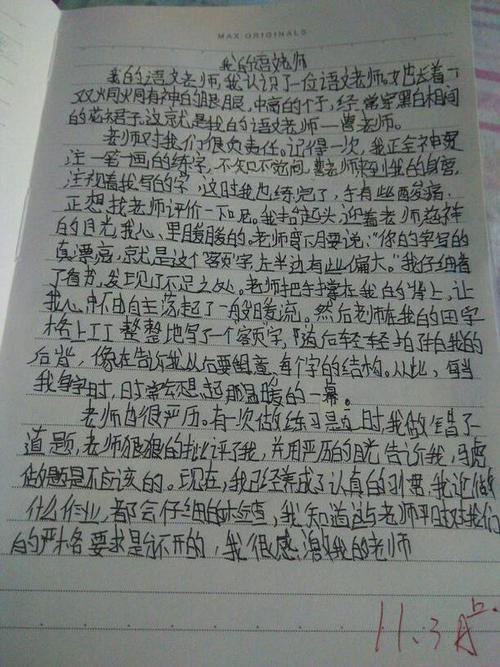 MAX ORIGINALS
我的语文老师
我的语文老师,我认识了一位语文老师。她长着一
双炯炯有神的眼睛,中高的个子,经常穿黑白相间
的花裙子,这就是我的语文老师—曹老师。
老师对我们很负责任。记得一次,我正全神贯
注一笔一画的练字,不知不觉间,曹老师来到我的身旁,
注视着我写的字,这时我也练完了,手有些酸痛,
正想找老师评价一下呢。我抬起头,迎着老师慈祥
的目光我心里暖暖的。老师弯下腰说:"你的字写的
真漂亮,就是这个字,左半边有些偏大。"我仔细看
了看,发现了不足之处。老师把手撑在我的背上,让
我心中不由自主荡起了一股暖流。然后老师在我的田字
格上工工整整地写了一个字,后轻轻拍拍我的
后背,像在告诉我以后要留意每个字的结构。从此,每当
我写字时,时常会想起那温暖的一幕。
老师也很严历。有一次做练习是时,我做错了一
道题,老师狠狠的批评了我,并用严历的目光告诉我,马虎
做题是不应该的。现在,我已经养成了认真的习惯,我
什么作业,都会仔细的检查,我知道这与老师平时对我们
的严格要求是分不开的,我很感激我的老师
11.3